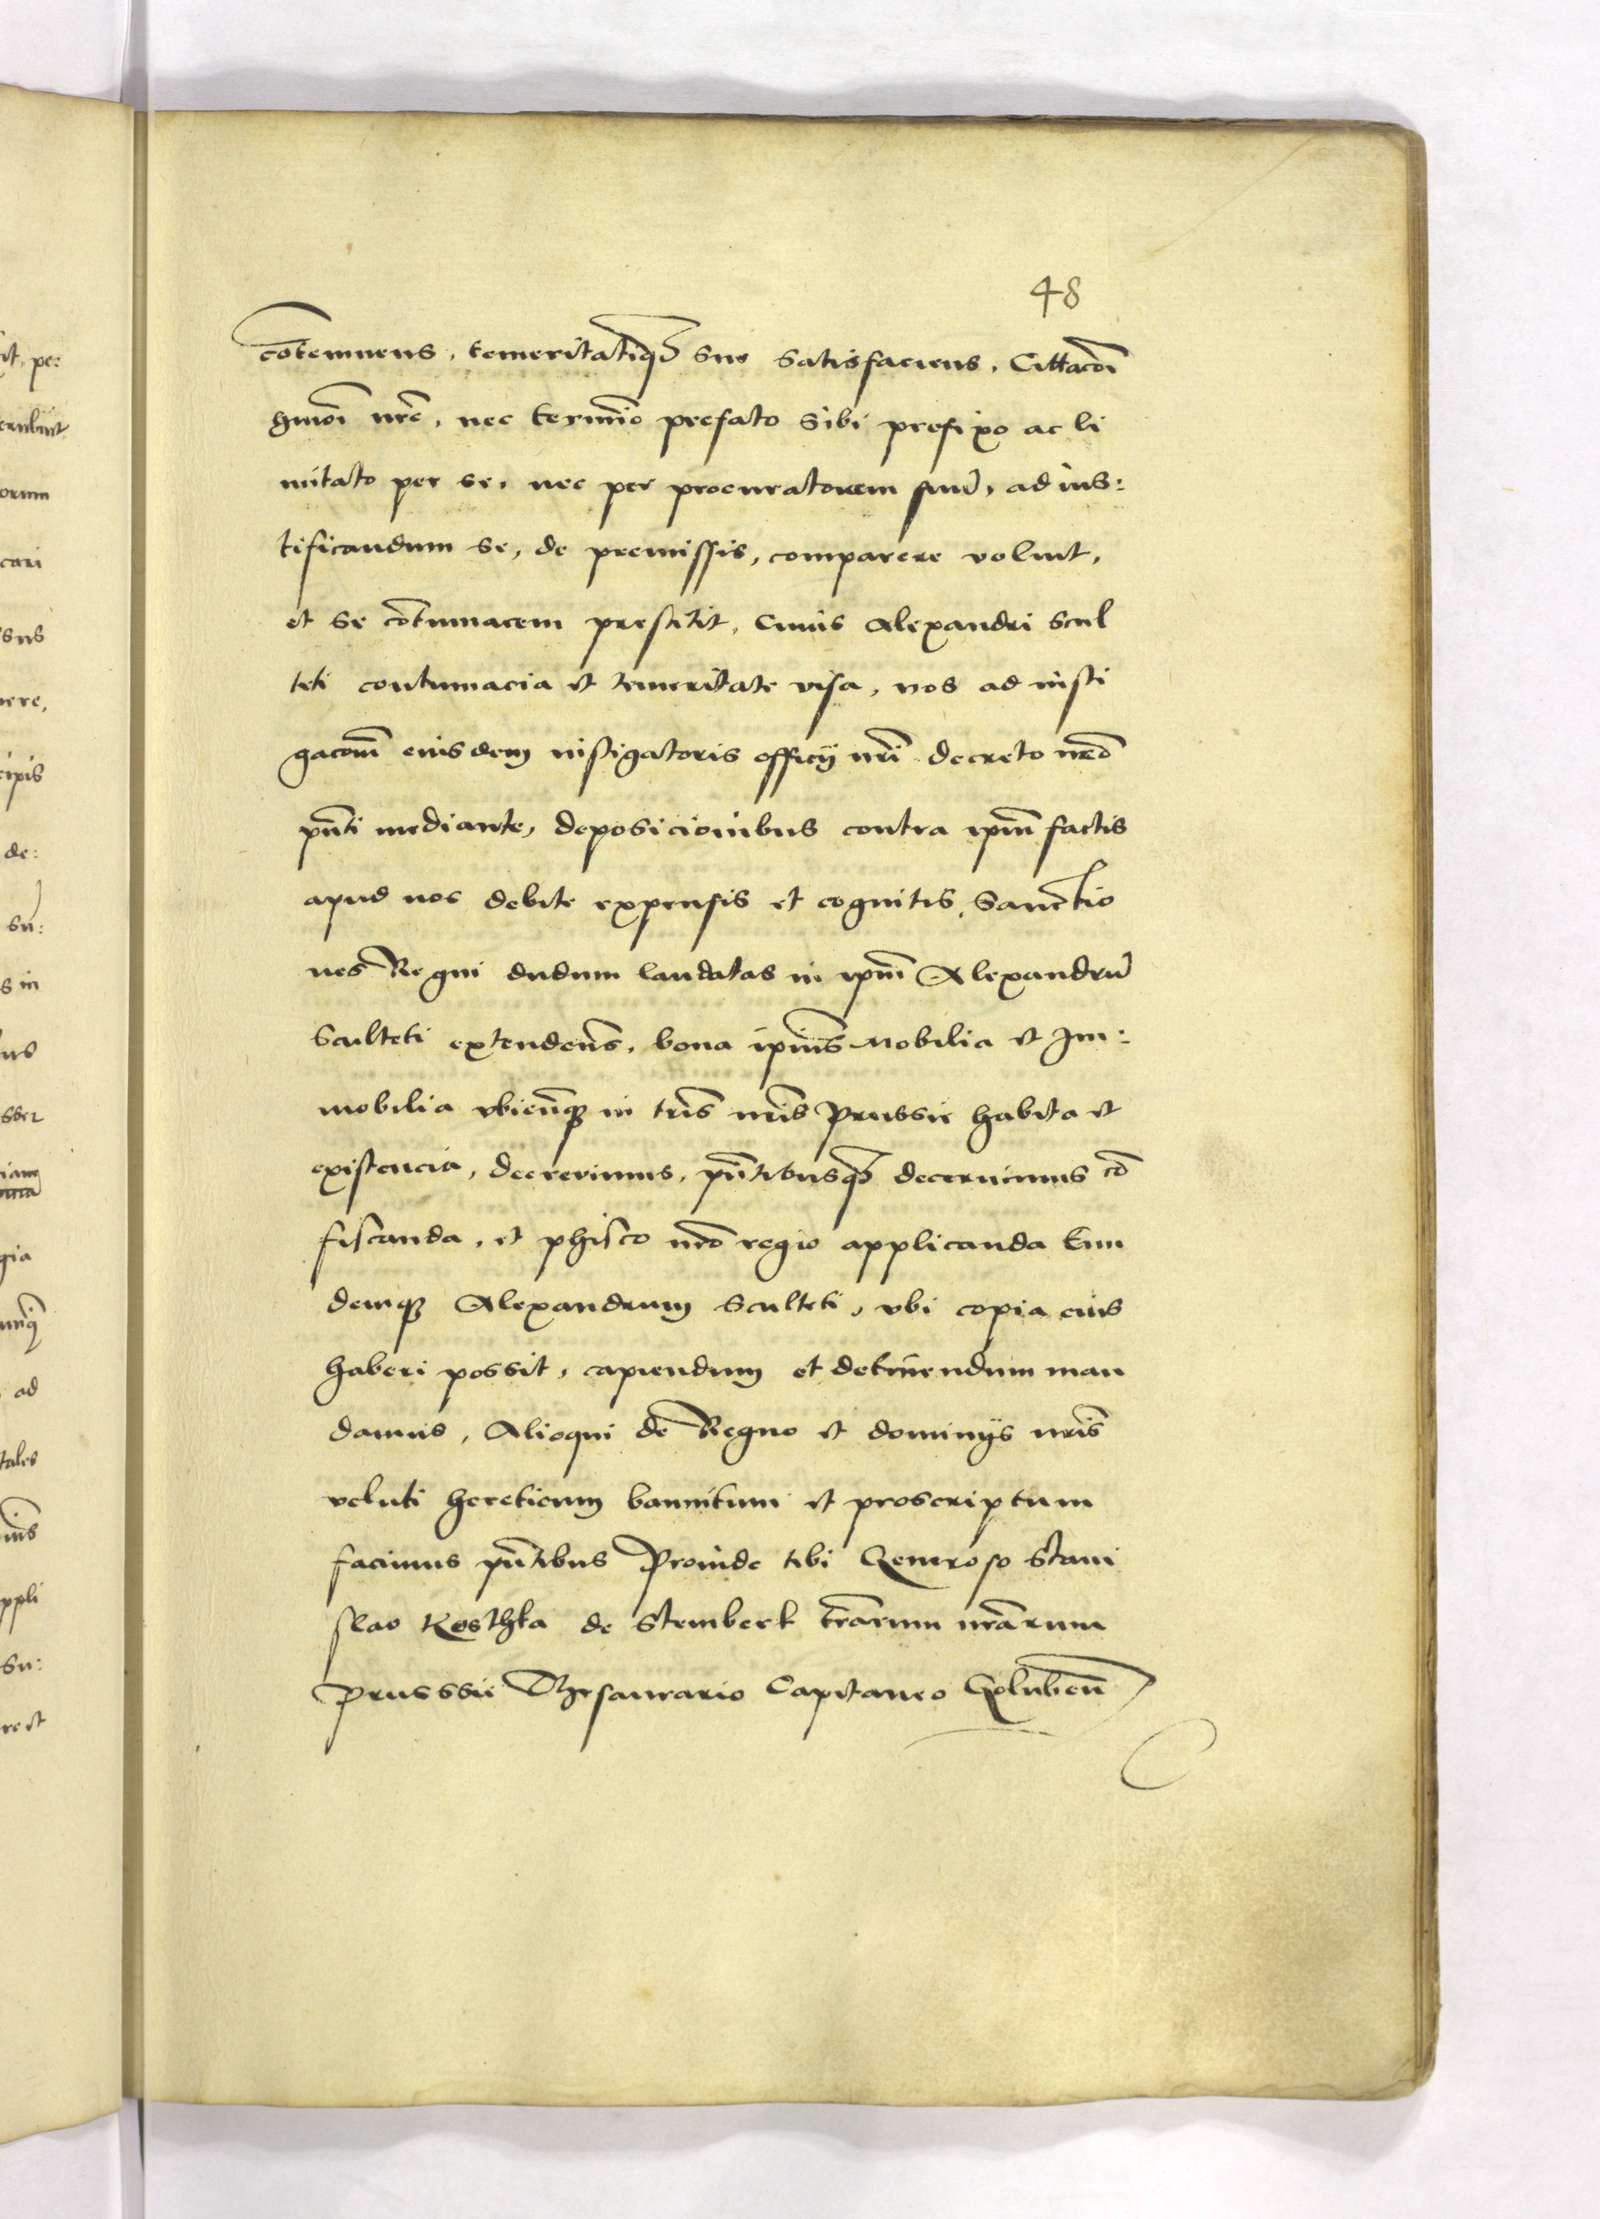 48
cōtemnens, temeritatiq3 sue satisfaciens, Cittacōi
hmoi nrē, nec termio prefato sibi prefixo ac li
mitato per se, nec per procuratorem suū, ad ius:
tificandum se, de premissis, comparere voluit,
et se cōtumacem prestitit, Cuius Alexandri Scul
teti contumacia et temeritate visa, nos ad insti
gacōm eiusdem instigatoris officij nrī decreto nrō
pn̄ti mediante, deposicionibus contra ipm̄ factis
apud nos debite expensis et cognitis, Sanctio
nes Regni dudum laudatas in ipm̄ Alexandrū
Sculteti extenden̄s, bona ipsius Mobilia et Im:
mobilia vbicūq3 in tris nrīs Prussie habita et
existencia, decrevimus, pn̄tibusq3 decernimus cō
fiscanda, et phisco nrō regio applicanda Eun
demq3 Alexandrum Sculteti, vbi copia eius
haberi possit, capiendum et detinendum man
damus, Alioqui de Regno et dominijs nrīs
veluti hereticum bannitum et proscriptum
facimus pn̄tibus Proinde tibi Generoso Stani
slao Kosthka de Stemberk trārum nrārum
Prusssie Thesaurario Capitaneo Golubeñ
it, pe:
orum
cari
sus
nere,
cipis
de:
su:
s in
us
sser
iam
gia
ad
tales
ppli
su:
rect